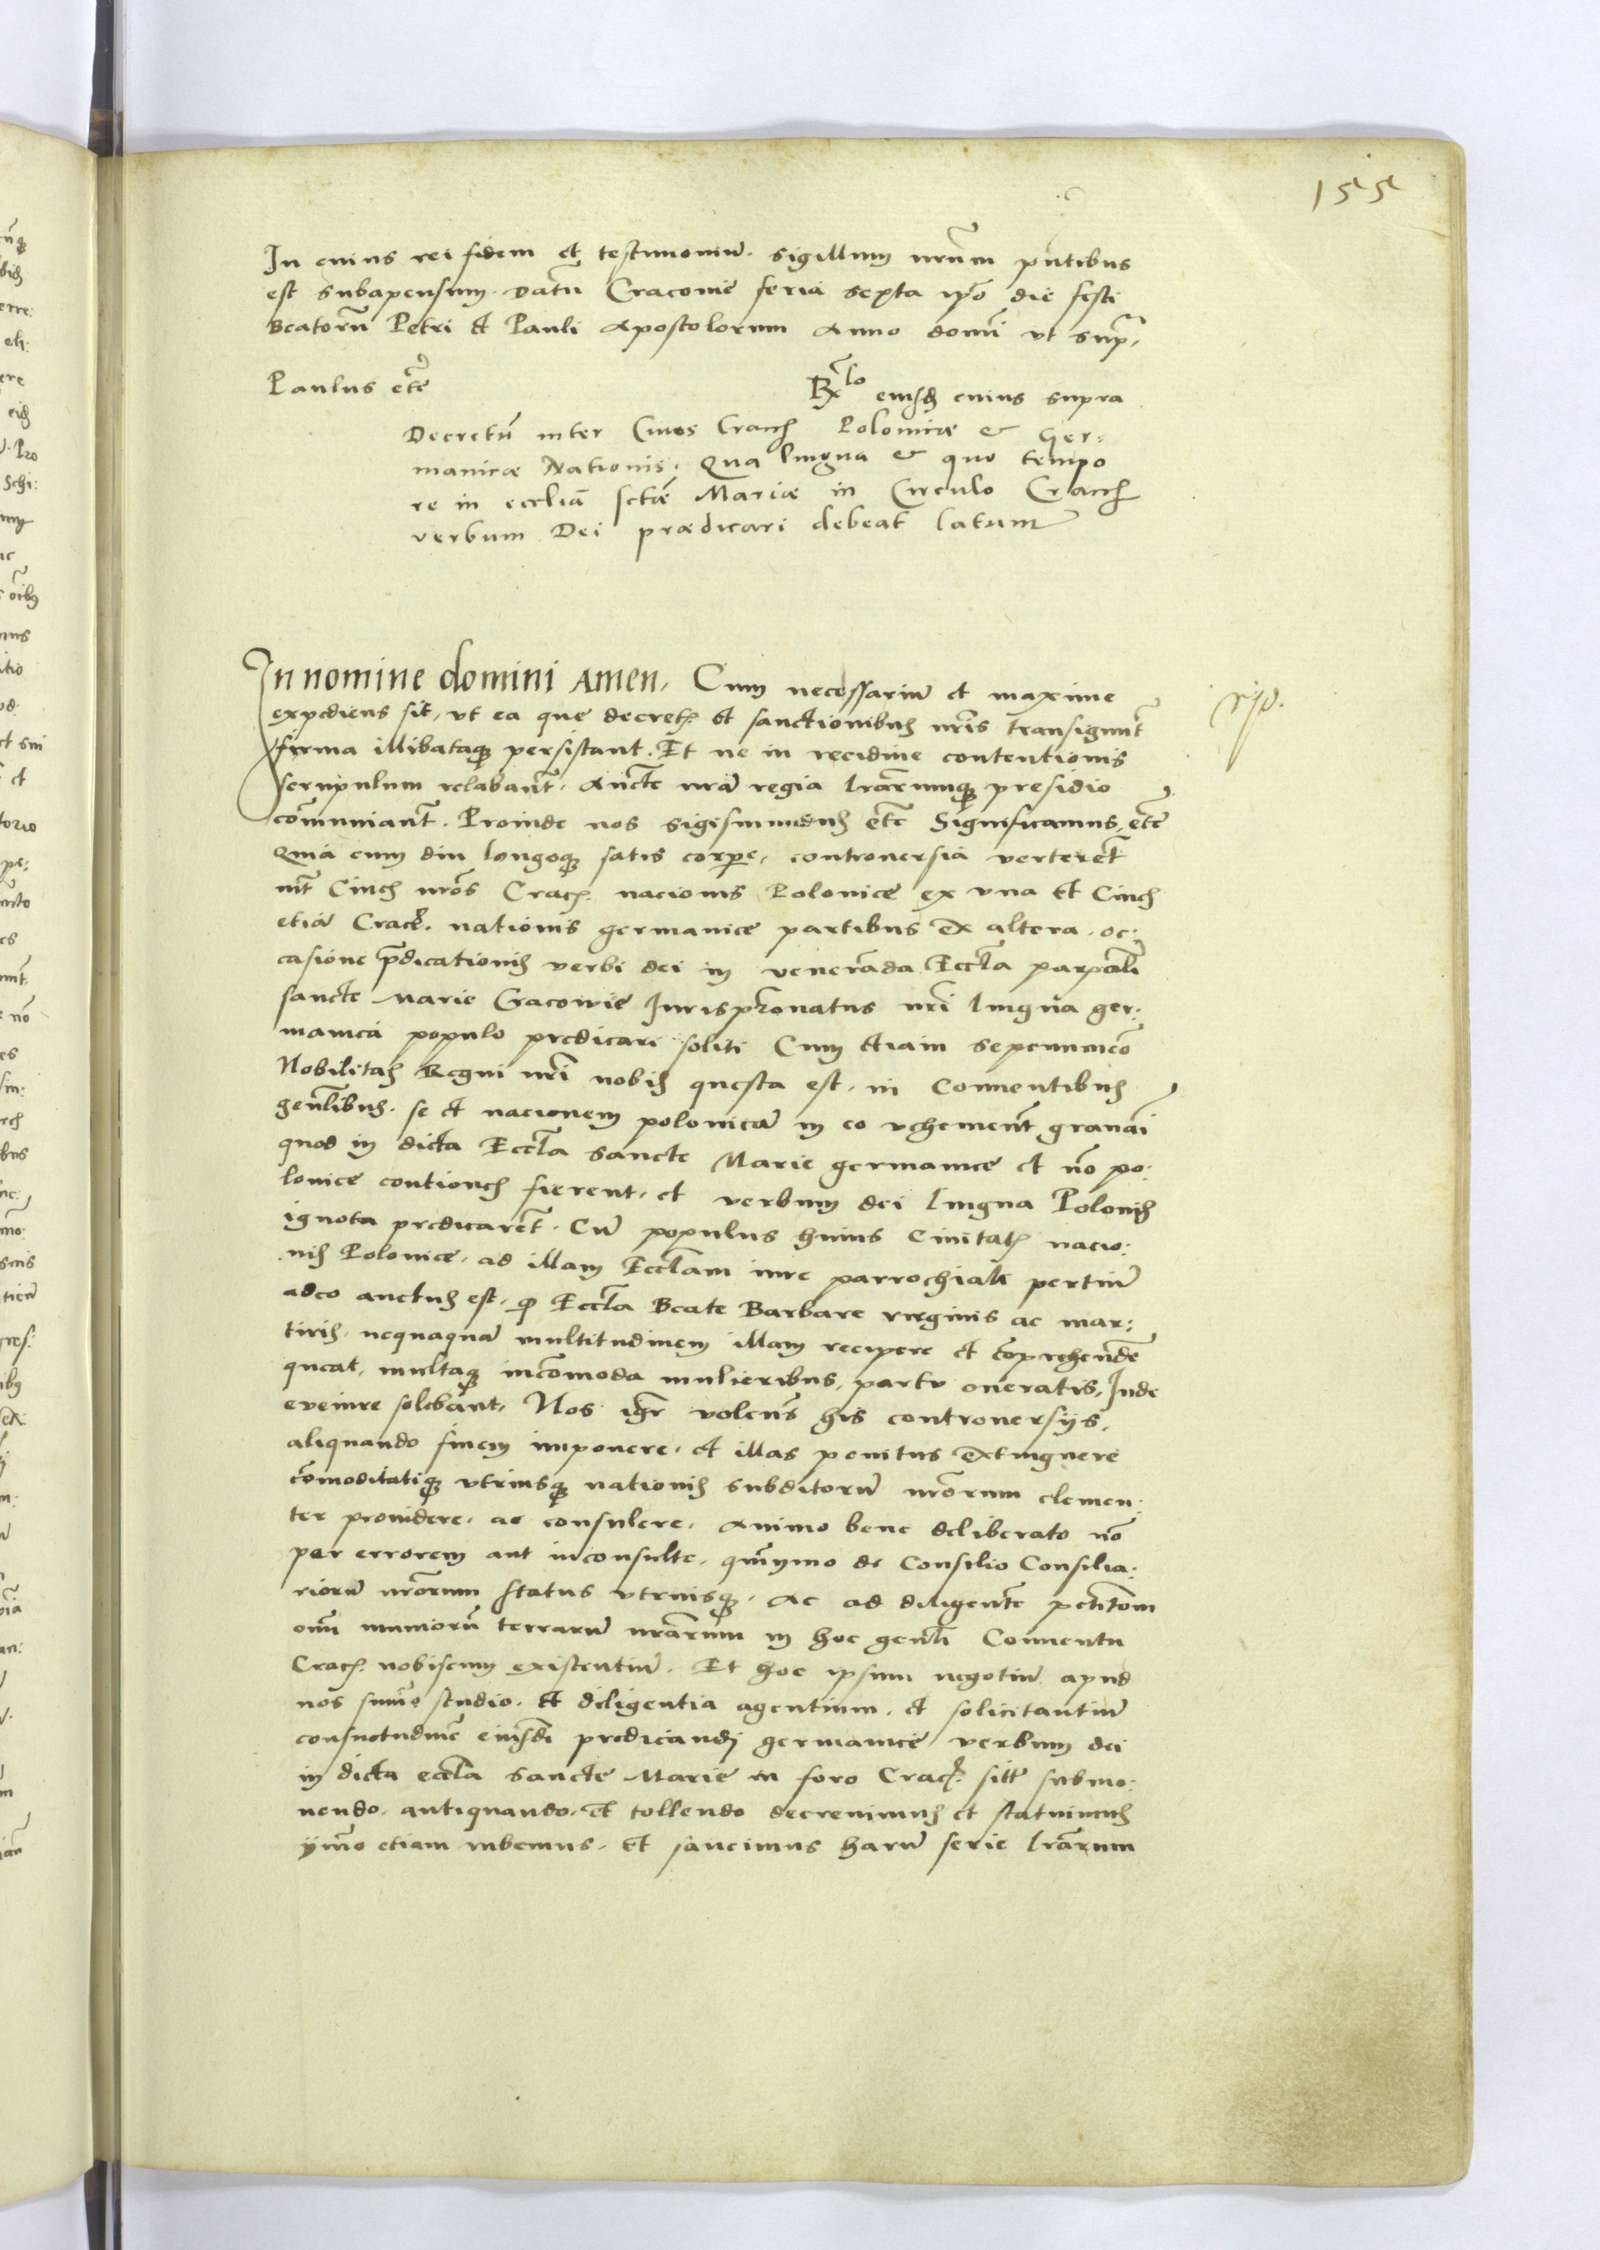 155
In cuius rei fidem et testimoniũ. sigillum nr̃um pñtibus
est subapensum. datũ Cracovie feria sexta ip̃o die festi
Beatorũ Petri et Pauli Apostolorum Anno domĩ ut supr̃
Paulus etc̃
Rl̃o eiusdem cuius supra
Decretũ inter Cives Cracꝭ Polonicæ & Ger:
manicæ Nationis. Qua lingua & quo tempo
re in eccliã sctæ Mariæ in Circulo Cracꝭ
verbum Dei prædicari debeat latum
In nomine domini Amen. Cum necessariũ et maxime
rzd.
expediens sit, ut ea que decretꝭ et sanctionibus nr̃is transigunt̃
firma illibataqꝫ persistant. Et ne in recidive contentionis
scrupulum relabant̃. Aucte nr̃a regia lr̃arumqꝫ presidio
com̃uniant̃. Proinde nos Sigismundus etc̃ Significamus, etc̃
Quia cum diu longoqꝫ satis corpe, controversia verteret̃
int̃ Cives nr̃os Cracꝭ. nacionis Polonice ex una et Cives
etiã Cracꝭ. nationis germanice partibus ex altera. oc:
casione p̃dicationis verbi dei in veneranda Eccl̃a parocali
sancte Marie Cracovie Jurispr̃onatus nr̃i lingua ger:
manica populo predicari soliti Cum etiam sepenumeõ
Nobilitas Regni nr̃i nobis questa est. in Conventibus
genl̃ibus. se et nacionem polonicã in eo vehement̃ gravari
quod in dicta Eccl̃a sancte Marie germanice et nõ po:
lonice contiones fierent. et verbum dei lingua Polonis
ignota predicaret̃. Cũ populus huius Civitatꝭ nacio:
nis Polonice. ad illam Eccl̃am iure parrochiali pertinẽ
adeo auctus est. qꝫ Eccl̃a Beate Barbare virginis ac mar:
tiris. nequaquã multitudinem illam recipere et cõprehendẽ
queat, multaqꝫ incõmoda mulieribus, partu oneratis, Inde
evenire solebant. Nos igr̃ volens̃ his controversijs,
aliquando finem imponere. et illas penitus extinguere
cõmoditatiqꝫ utriusqꝫ nationis subditorũ nr̃orum clemen:
ter providere. ac consulere. Animo bene deliberato nõ
per errorem aut inconsulte. quinymo de Consilio Consilia:
riorũ nr̃orum status utriusqꝫ. Ac ad diligentẽ petitõem
om̃ nunciorũ terrarũ nr̃arum in hoc genl̃i Conventu
Cracꝭ nobiscum existentiũ. Et hoc ipsum negotiũ apud
nos summo studio. et diligentia agentium. et solicitantiũ
consuetudinẽ eiusdẽ predicandi germanice verbum dei
in dicta eccl̃a sancte Marie in foro Cracꝭ. sitẽ submo:
vendo. antiquando. et tollendo decrevimus et statuimus
ymo etiam iubemus. et sancimus harũ serie lr̃arum